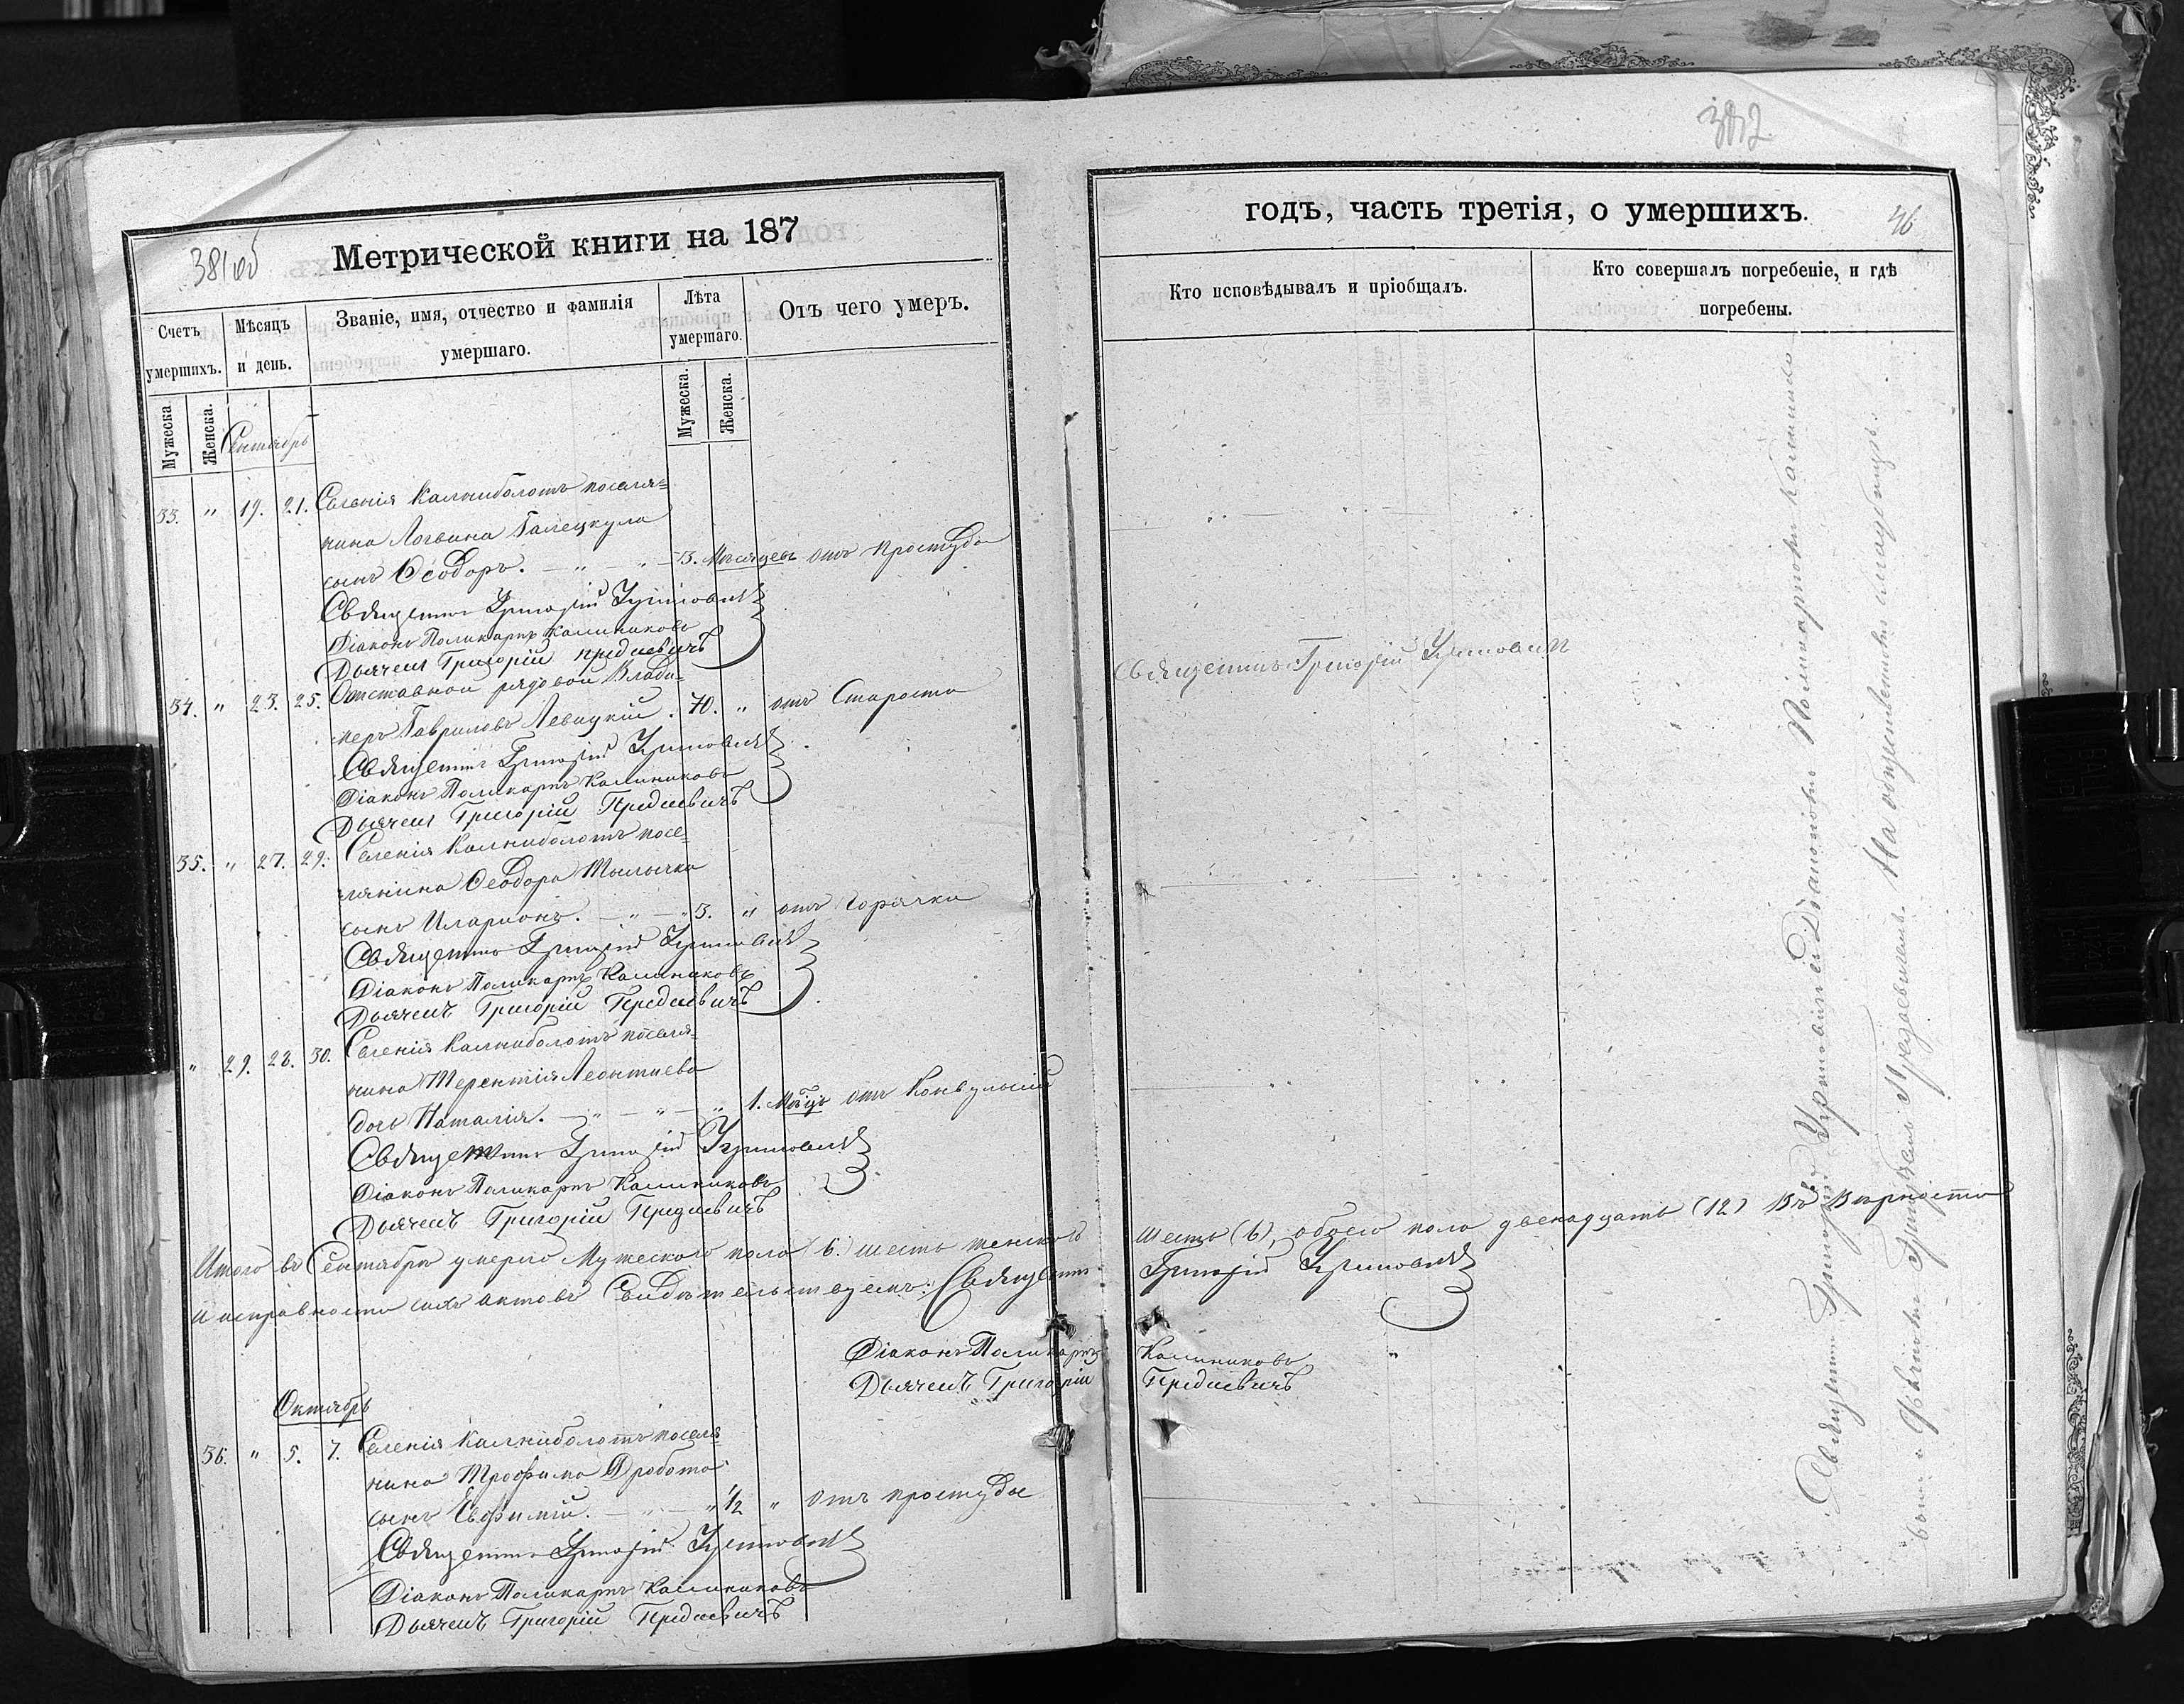 382
381об
Метрической книги на 187
годъ, часть третія, о умершихъ.
46
Счетъ умершихъ.
Мѣсяцъ и день.
Званіе, имя, отчество и фамилія умершаго.
Лѣта умершаго.
Отъ чего умеръ.
Кто исповѣдывалъ и пріобщалъ.
Кто совершалъ погребеніе, и гдѣ погребены.
Мужеска
Женска.
Мужеска.
Женска.
Сентябрь
33. " 19. 21. Селенія Калниболотъ поселя=
нина Логвина
сынъ Ѳеодоръ. — " — " — 3. Мѣсяцевъ отъ простуды
Священникъ Григорій
Діаконъ Поликарпъ Калиниковъ
Дьячекъ Григорій
34. " 23. 25. Отставной рядовой Влади-
меръ Гавриловъ Левицкій. 70. " отъ Старости
Священникъ Григорій
Діаконъ Поликарпъ Калиниковъ
Дьячекъ Григорій
Священникъ Григорій
35. " 27. 29. Селенія Калниболотъ посе-
лянина Ѳеодора
сынъ Иларионъ. — " — " 3. " отъ горячки
Священникъ Григорій
Діаконъ Поликарпъ Калиниковъ
Дьячекъ Григорій
" 29. 28. 30. Селенія Калниболотъ поселя-
нина Терентія Леонтиева
дочь Наталія. — " — " — " 1. Мѣсцъ отъ Конвульсій
Священникъ Григорій
Діаконъ Поликарпъ Калиниковъ
Дьячекъ Григорій
Итого въ Сентябрѣ умерло Мужескаго пола (6.) шесть женскаго шесть (6), обоего пола двенадцать (12) Въ вѣрности
и исправности сихъ актовъ Свидѣтельствуемъ: Священникъ Григорій
Діаконъ Поликарпъ Калиниковъ
Дьячекъ Григорій
Октябрь
36. " 5. 7. Селенія Калниболотъ поселя
нина Трофима Дробота
сынъ Евфимій. — " — " 1/2 " отъ простуды
Священникъ Григорій
Діаконъ Поликарпъ Калиниковъ
Дьячекъ Григорій
Священникъ Григорій съ Діакономъ Поликарпомъ Калинико
вымъ и На общественномъ кладбищѣ.